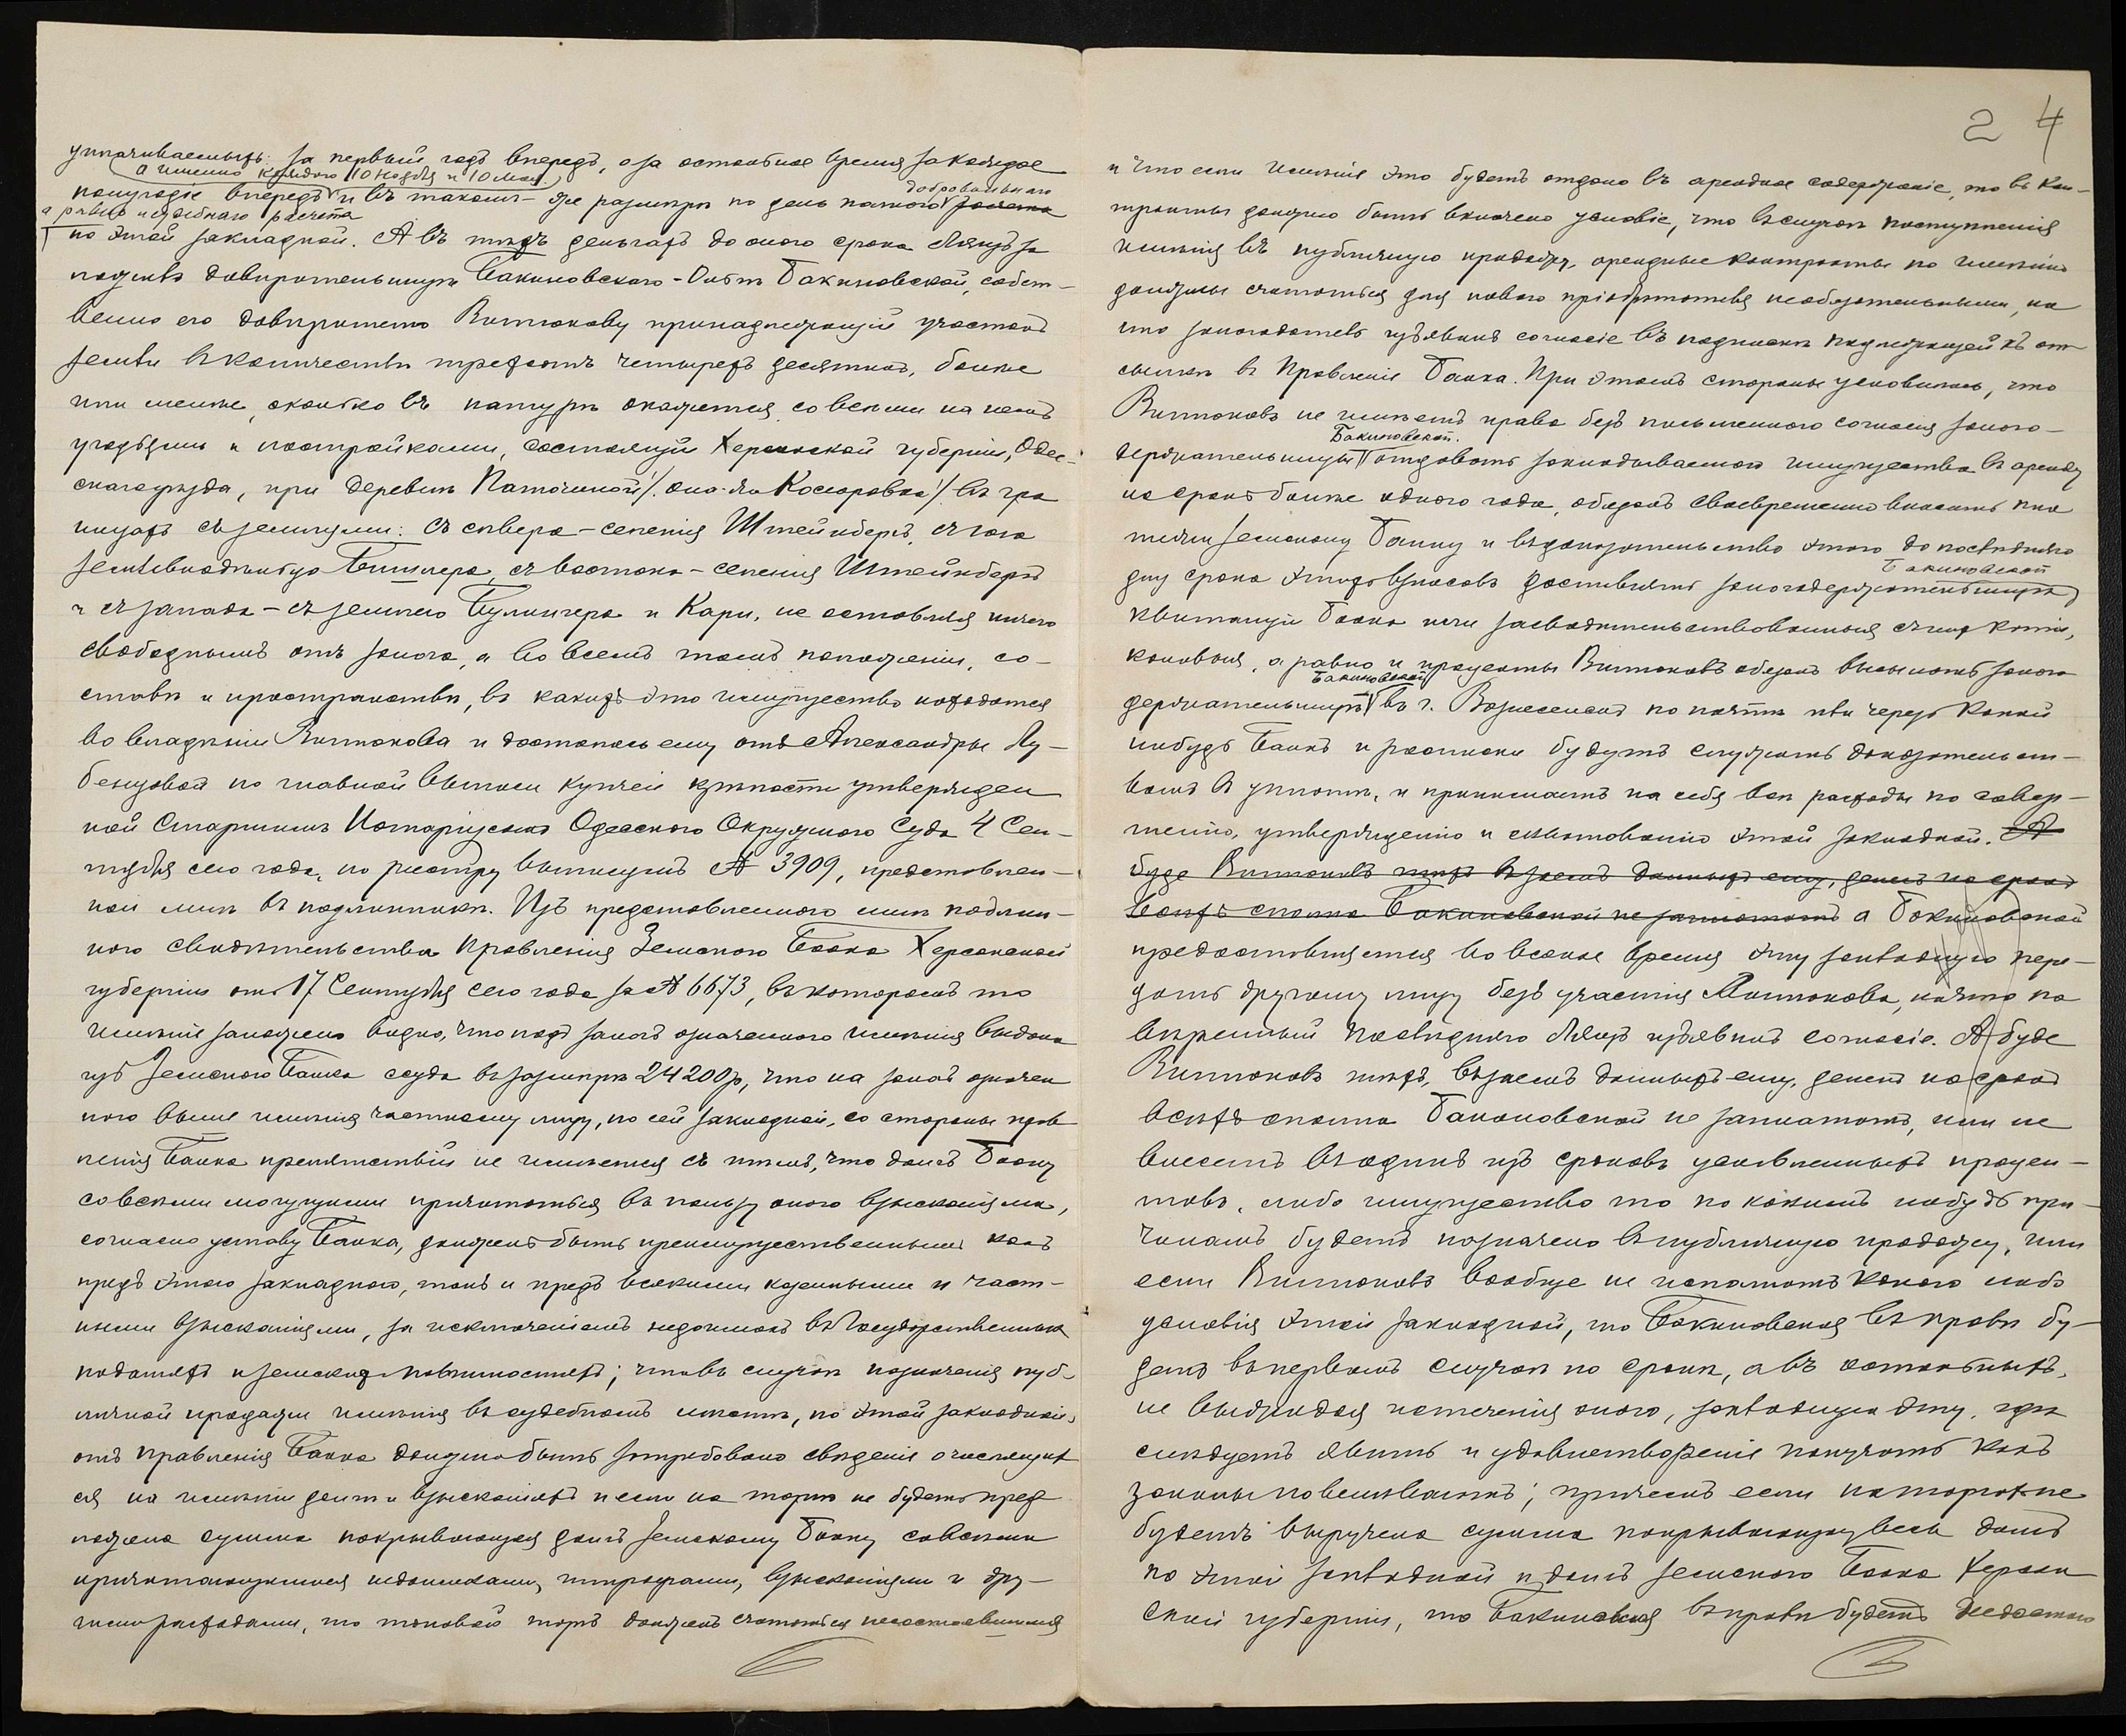 уплачиваемыхъ: за первый годъ впередъ, а за остальное время за каждое
а именно каждаго 10 Ноября и 10 Мая
полугодіе впередъ и въ такомъ-же размѣрѣ по день полнаго добровольнаго разсчета
а равно и судебнаго разсчета
по этой закладной. А въ тѣхъ деньгахъ до онаго срока Ляхъ за
ложилъ довѣрительницѣ Бакиновскаго - Ольгѣ Бакиновской, собст-
венно его довѣрителю Витюкову принадлежащій участокъ
земли въ количествѣ трехсотъ четырехъ десятинъ, болѣе
или менѣе, сколько въ натурѣ окажется, со всѣми на немъ
угодьями и постройками, состоящій Херсонской губерніи, Одес-
скаго уѣзда, при деревнѣ /она-же Косюровка/ въ гра
ницахъ съ землями: съ сѣвера - селенія Штейнбергъ, съ юга
землевладѣльца съ востока - селенія Штейнбергъ
и съ запада - съ землею и Кари, не оставляя ничего
свободнымъ отъ залога, а во всемъ томъ положеніи, со-
ставѣ и пространствѣ, въ какихъ это имущество находится
во владѣніи Витюкова и досталось ему отъ Александры Лу-
бенцовой по главной выписи купчей крѣпости утвержден
ной Старшимъ Нотаріусомъ Одесскаго Окружнаго Суда 4 Сен-
тября сего года, по реестру выписумъ № 3909, представлен-
ной мнѣ въ подлинникѣ. Изъ представленнаго мнѣ подлин-
наго свидѣтельства Правленія Земскаго Банка Херсонской
губерніи отъ 17 Сентября сего года за № 6673, въ которомъ то
имѣніе заложено видно, что подъ залогъ означеннаго имѣнія выдана
изъ Земскаго Банка ссуда въ размѣрѣ 24200 р, что на залогъ означен
наго выше имѣнія частному лицу, по сей закладной, со стороны прав
ленія Банка препятствій не имѣется съ тѣмъ, что долгъ Банку
со всѣми могущими причитаться въ пользу онаго взысканіями,
согласно уставу Банка, долженъ быть преимущественнымъ какъ
предъ этою закладною, такъ и предъ всякими казенными и част-
ными взысканіями, за исключеніемъ недоимокъ въ Государственныхъ
податяхъ и земскихъ повинностяхъ; что въ случаѣ назначенія пуб-
личной продажи имѣнія въ судебномъ мѣстѣ, по этой закладной,
отъ Правленія Банка должно быть затребовано свѣдѣніе о числящих
ся на имѣніи долгѣ и взысканіяхъ и если на торгѣ не будетъ пред
ложена сумма покрывающая долгъ Земскому Банку со всѣми
причитающимися недоимками, штрафами, взысканіями и дру-
гими расходами, то таковой торгъ долженъ считаться несостоявшимся
24
и что если имѣніе это будетъ отдано въ арендное содержаніе, то въ кон-
трактѣ должно быть включено условіе, что въ случаѣ поступленія
имѣнія въ публичную продажу, арендные контракты по имѣнію
должны считаться для новаго пріобрѣтателя необязательными, на
что залогодатель изъявилъ согласіе въ подпискѣ подлежащей къ от
сылкѣ въ Правленіе Банка. При этомъ стороны условились, что
Витюковъ не имѣетъ права безъ письменнаго согласія залого-
держательницы Бакиновской отдавать закладываемаго имущества въ аренду
на срокъ болѣе одного года, обязанъ своевременно вносить пла
тежи Земскому Банку и въ доказательство этого до послѣдняго
дня срока этихъ взносовъ доставлять залогодержательницѣ Бакиновской
квитанціи Банка или засвидѣтельствованныя съ нихъ копіи,
каковыя, а равно и проценты Витюковъ обязанъ высылать залого
держательницѣ Бакиновской въ г. Вознесенскъ по почтѣ или черезъ какой
нибудь Банкъ и росписки будутъ служить доказательст-
вомъ въ уплатѣ, и принимаетъ на себя всѣ расходы по совер-
шенію, утвержденію и этой закладной. А
буде Витюковъ тѣхъ взаемъ данныхъ ему, денегъ на срокъ
всѣхъ сполна Бакиновской не заплатитъ а Бакиновской
предоставляется во всякое время эту закладную пере-
дать другому лицу безъ участія Витюкова, на что по
вѣренный послѣдняго Ляхъ изъявилъ согласіе. А буде
Витюковъ тѣхъ, взаемъ данныхъ ему, денегъ на срокъ
всѣхъ сполна Бакиновской не заплатитъ, или не
внесетъ въ одинъ изъ сроковъ условленныхъ процен-
товъ, либо имущество то по какимъ нибудь при-
чинамъ будетъ назначено въ публичную продажу, или
если Витюковъ вообще не исполнитъ какого либо
условія этой закладной, то Бакиновская въ правѣ бу-
детъ въ первомъ случаѣ по срокѣ, а въ остальныхъ,
не выжидая истеченія онаго, закладную эту, гдѣ
слѣдуетъ явить и удовлетвореніе получить какъ
законы повелѣваютъ; причемъ если на торгахъ не
будетъ выручена сумма покрывающая весь долгъ
по этой закладной и долгъ Земскаго Банка Херсон
ской губерніи, то Бакиновская въ правѣ будетъ недостаю